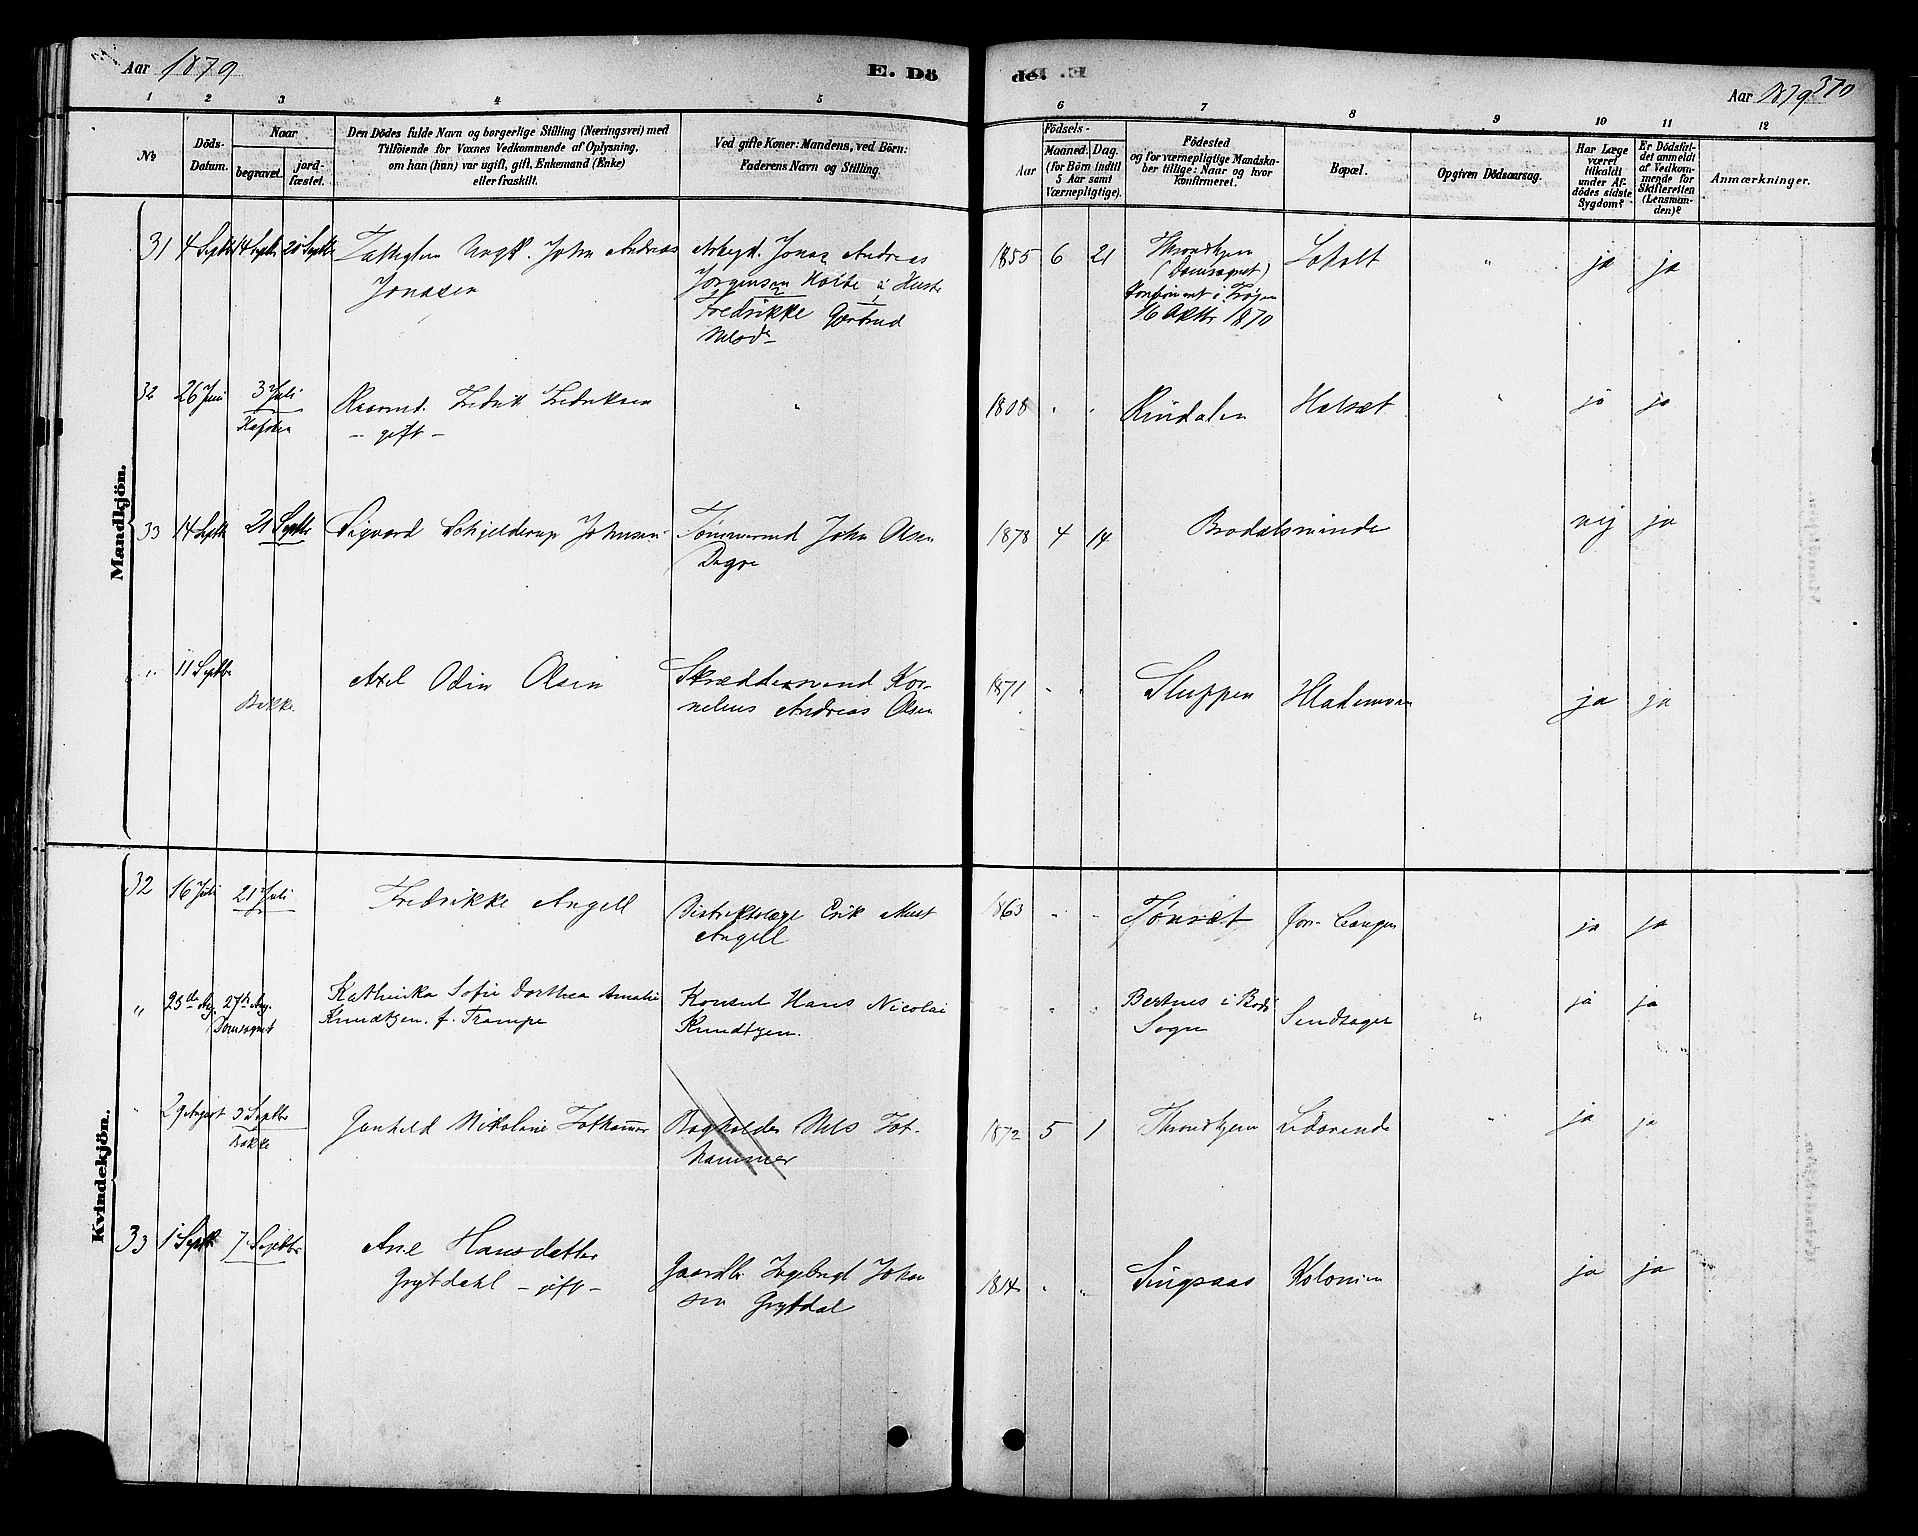 Aar 1879
E. Dö
de.
Aar 1879
370
1 2 3 4 5 6 7 8 9 10 11 12
No
Döds-
Datum.
Naar
begravet.
jord-
fæstet.
Den Dödes fulde Navn og borgerlige Stilling (Næringsvei) med
Tilföiende for Voxnes Vedkommende af Oplysning,
om han (hun) var ugift, gift, Enkemand (Enke)
eller fraskilt.
Ved gifte Koner: Mandens, ved Börn:
Faderens Navn og Stilling.
Födsels-
Aar
Maaned.
Dag.
(for Börn indtil
5 Aar samt
Værnepligtige).
Födested
og for værnepligtige Mandska-
ber tillige: Naar og hvor
konfirmeret.
Bopæl.
Opgiven Dödsaarsag.
Har Læge
været
tilkaldt
under Af-
dödes sidste
Sygdom?
Er Dödsfal-
det anmeldt
af Vedkom-
mende for
Skifteretten
(Lensman-
den)?
Anmærkninger.
Mandkjön.
31 4 Septbr 14 Septr Ungk. John Andreas
Jonasen
Arbeyd. Jonas Andreas
Jörgensen
Fredrikke
1855 6 21
Throndhjem
(Domsognet)
1870
ja ja
32 26 Juni 3 Juli
Fredrik Fredriksen
- gift -
" 1808 " " Rindalen Halset " ja ja
33 14 Septbr 21 Septbr Sigvard Schjelderup Johnsen
Tömmermd John Olsen
1878 4 14 Brodalsminde nej ja
" 11 Septbr
Bakke
Axel Odin Olsen
Skræddersvend Kor-
nelius Andreas Olsen
1871 " " Sluppen ja ja
Kvindekjön.
32 16 Juli 21 Juli Fredrikke Angell
Distriktslæge Erik Must
Angell
1863 " " Tönset ja ja
" 27de Aug.
Domsognet
Kathinka Sofie Dorthea Amalie
Knudtzon. f. Trampe
Konsul Hans Nicolai
Knudtzon.
" " Bertnes i Bodö
Sogn
" ja ja
" 29 August 3 Septbr
Bakke
Gunhild Nikoline
Bogholder Nils
hammer
1872 5 1 Throndhjem " ja ja
33 1 Septbr 7 Septbr Ane Hansdatter
Grytdahl - gift -
Gaardbr. Ingebrigt Johan
sen Grytdal
1814 " " Singsaas Kolonien ja ja